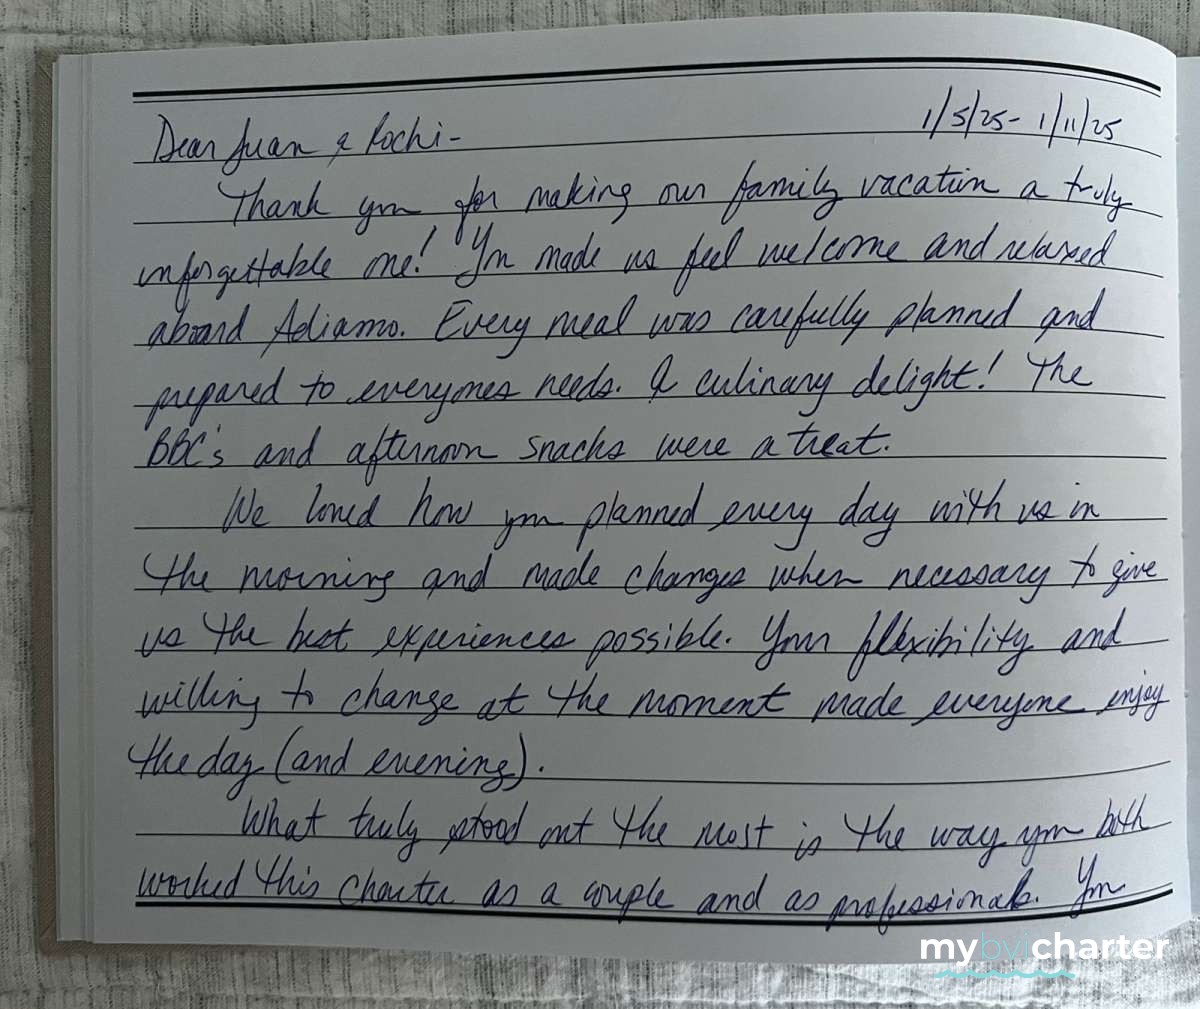 1/5/25 - 1/11/25
Dear Juan & Rochi -
Thank you for making our family vacation a truly
unforgettable one! You made us feel welcome and relaxed
aboard Adiamo. Every meal was carefully planned and
prepared to everyones needs. A culinary delight! The
BBC's and afternoon snacks were a treat.
We loved how you planned every day with us in
the morning and made changes when necessary to give
us the best experiences possible. Your flexibility and
willing to change at the moment made everyone enjoy
the day (and evening).
What truly stood out the most is the way you both
worked this charter as a couple and as professionals. You
mybvicharter